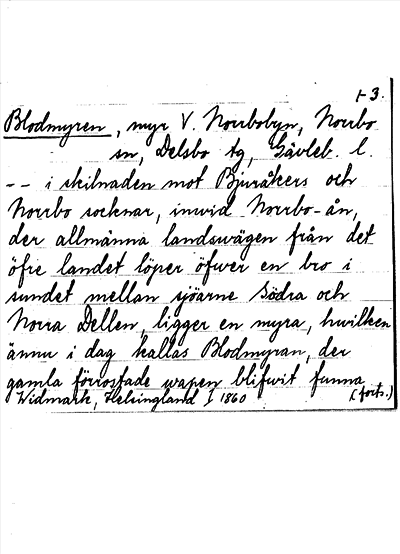 1-3.
Blodmyren, myr V. Norrbobyn, Norrbo
sn, Delsbo tg, Gävleb. l.
-- i skilnaden mot Bjuråkers och
Norrbo socknar, inwid Norrbo-ån,
der allmänna landswägen från det
öfre landet löper öfwer en bro i
sundet mellan sjöarne Södra och
Norra Dellen, ligger en myra, hwilken
ännu i dag kallas Blodmyran, der
gamla förrostade wapen blifwit funna
Widmark, Helsingland I 1860 (forts.)